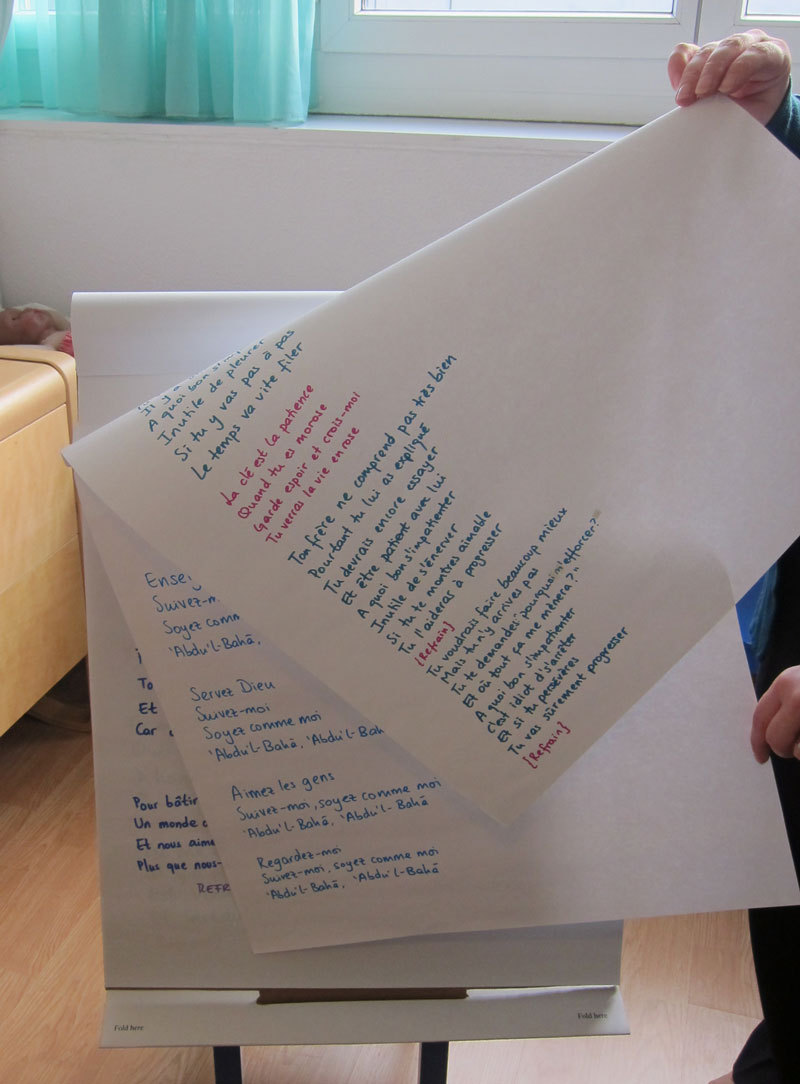 A quoi bon
Inutile de pleurer
Si tu y vas pas à pas
Le temps va vite filer
La clé est la patience
Quand tu es morose
Garde espoir et crois-moi
Tu verras la vie en rose
Ton frère ne comprend pas très bien
Pourtant tu lui as expliqué
Tu devrais encore essayer
Et être patient avec lui
A quoi bon s'impatienter
Inutile de s'énerver
Si tu te montres aimable
Tu l'aideras à progresser
[Refrain]
Tu voudrais faire beaucoup mieux
Mais tu n'y arrives pas
Tu te demandes: pourquoi m'efforcer?
Et où tout ça me mènera?"
A quoi bon s'impatienter
C'est idiot d's'arrêter
Et si tu persévères
Tu vas sûrement progresser
[Refrain]
Suivez-m
Soyez comm
'Abdu'l-Bahā,
Servez Dieu
Suivez-moi
Soyez comme moi
'Abdu'l-Bahā, 'Abdu'l-Bah
Aimez les gens
Suivez-moi, soyez comme moi
'Abdu'l-Bahā, 'Abdu'l-Bahā
Regardez-moi
Suivez-moi, soyez comme moi
'Abdu'l-Bahā, 'Abdu'l-Bahā
To
Et
Car
Pour bâtir
Un monde
Et nous aim
Plus que nous-
REFR
Fold here
Fold here